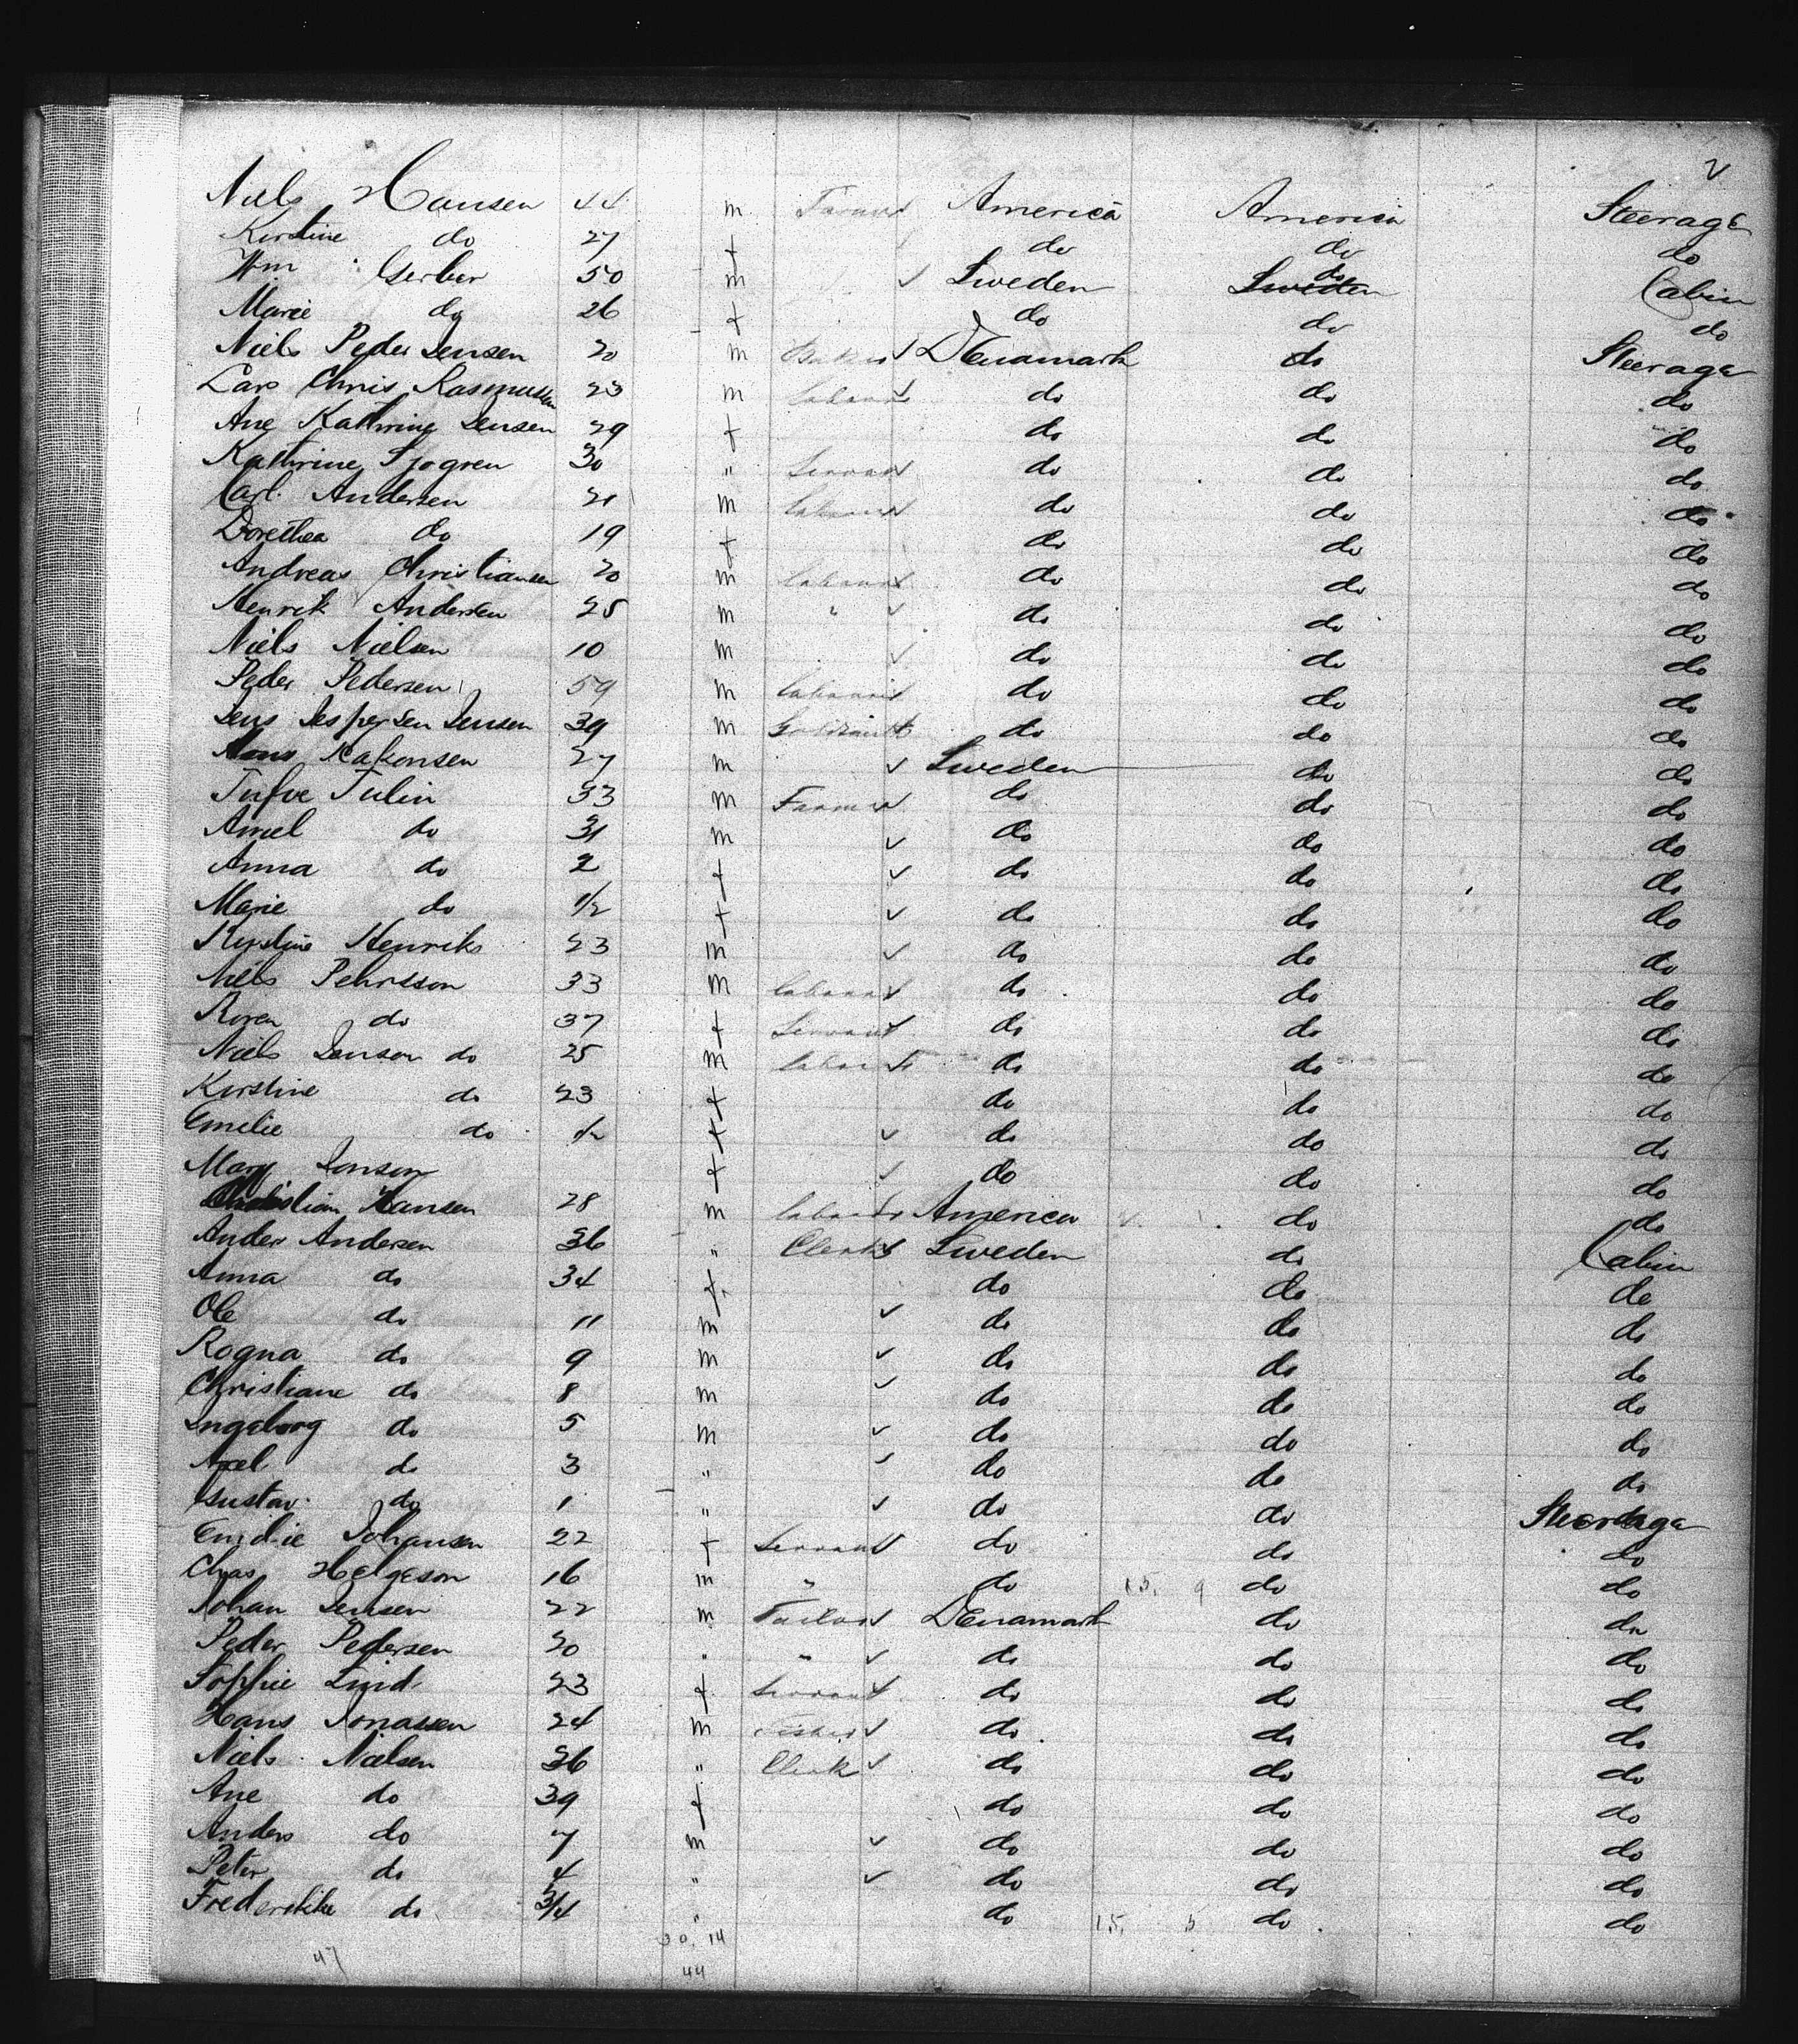 2
Niels Hansen 44 m Farmer America America Steerage
Kirstine do 27 f do do do
Wm Gerber 50 m Sweden Sweden do Cabin
Marie do 26 f do do do
Niels Peder Jensen 20 m Denamark do Steerage
Lars Chris Rasmussen 23 m labourer do do do
Ane Kathrine Jensen 29 f do do do
Kathrine Sjogren 30 " Servant do do do
Carl Andersen 21 m labourer do do do
Dorethea do 19 f do do do
Andreas Christiansen 20 m labourer do do do
Henrik Andersen 25 m " do do do
Niels Nielsen 10 m do do do
Peder Pedersen 59 m labourer do do do
Jens Jespersen Jensen 39 m Goldsmith do do do
Hans Hakonsen 27 m Sweden do do
Tufve Tulin 33 m Farmer do do do
do 31 m do do do
Anna do 2 f do do do
Marie do 1/2 f do do do
Kirstine Henriks 23 m do do do
Niels Pehrsson 33 m labourer do do do
do 37 f Servant do do do
Niels Jenson do 25 m labourer do do do
Kirstine do 23 f do do do
Emilie do 1/2 f do do do
Mary Jonson f do do do
Christian Hansen 28 m labourer America do do
Ander Andersen 36 " Clerk Sweden do Cabin
Anna do 34 f. do do do
Ole do 11 m do do do
Rogna do 9 m do do do
Christiane do 8 m do do do
Ingeborg do 5 m do do do
Axel do 3 " do do do
Gustav do 1 " do do Steerage
Emilie Johansen 22 f Servant do do do
Chas Helgeson 16 m " do do do
Johan Jensen 22 m Tailor Denamark do do
Peder Pedersen 20 " " do do do
Sophie Lind 23 f Servant do do do
Hans Jonassen 24 m do do do
Niels Nielsen 36 " Clerk do do do
Ane do 39 f do do do
Anders do 7 m do do do
Peter do 4 " do do do
Frederikke do 3/4 " do do do
47 30. 14
44